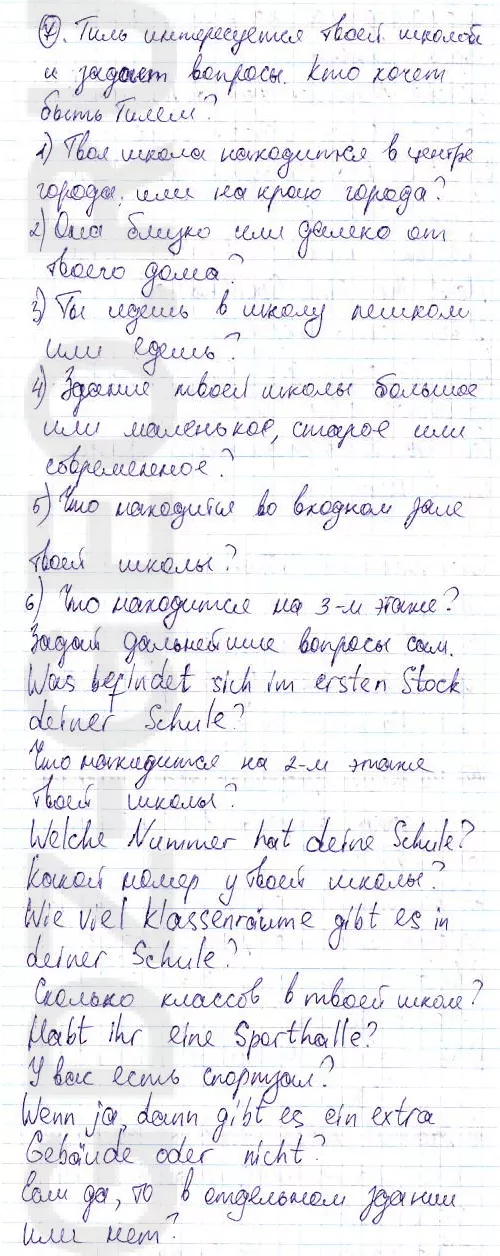 7. Тиль интересуется твоей школой
и задает вопросы. Кто хочет
быть Тилем?
1) Твоя школа находится в центре
города, или на краю города?
2) Она близко или далеко от
твоего дома?
3) Ты идешь в школу пешком
или едешь?
4) Здание твоей школы большое
или маленькое, старое или
современное?
5) Что находится во входном зале
твоей школы?
6) Что находится на 3-м этаже?
Задай дальнейшие вопросы сам.
Was befindet sich im ersten Stock
deiner Schule?
Что находится на 2-м этаже
твоей школы?
Welche Nummer hat deine Schule?
Какой номер у твоей школы?
Wie viel Klassenräume gibt es in
deiner Schule?
Сколько классов в твоей школе?
Habt ihr eine Sporthalle?
У вас есть спортзал?
Wenn ja, dann gibt es ein extra
Gebäude oder nicht?
Если да, то в отдельном здании
или нет?